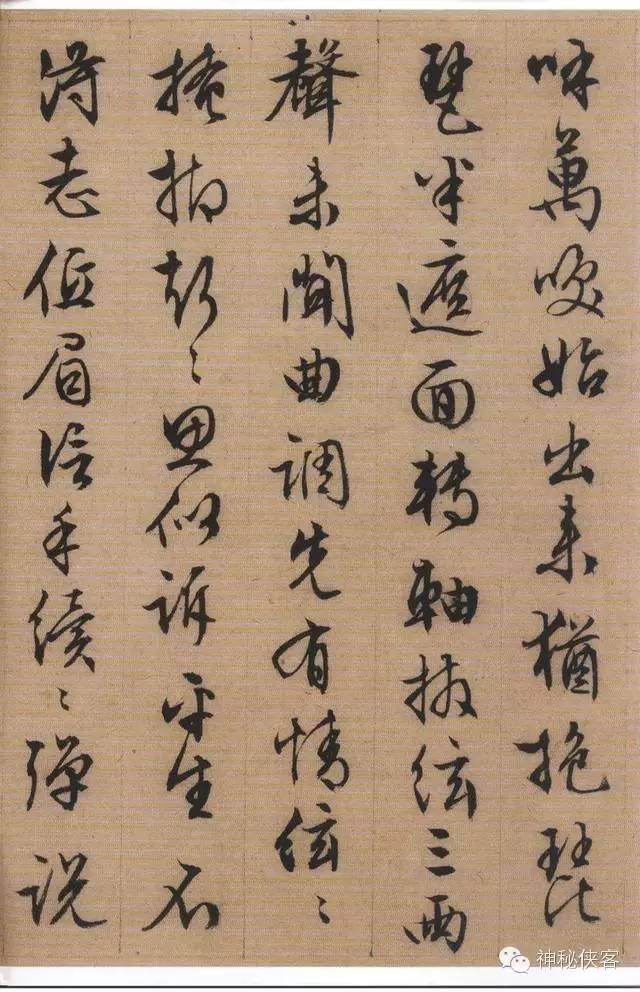 呼萬喚始出來猶抱琵
琶半遮面轉軸撥絃三兩
聲未聞曲調先有情絃〻
掩抑聲〻思似訴平生不
得志低眉信手續〻彈説
神秘侠客